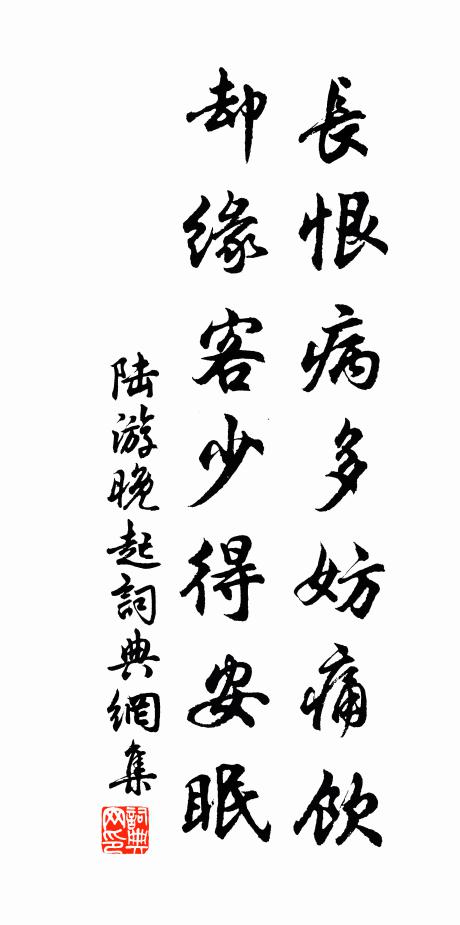 長恨病多妨痛飲
却緣客少得安眠
陸游晚起詞典網集
詞典網印